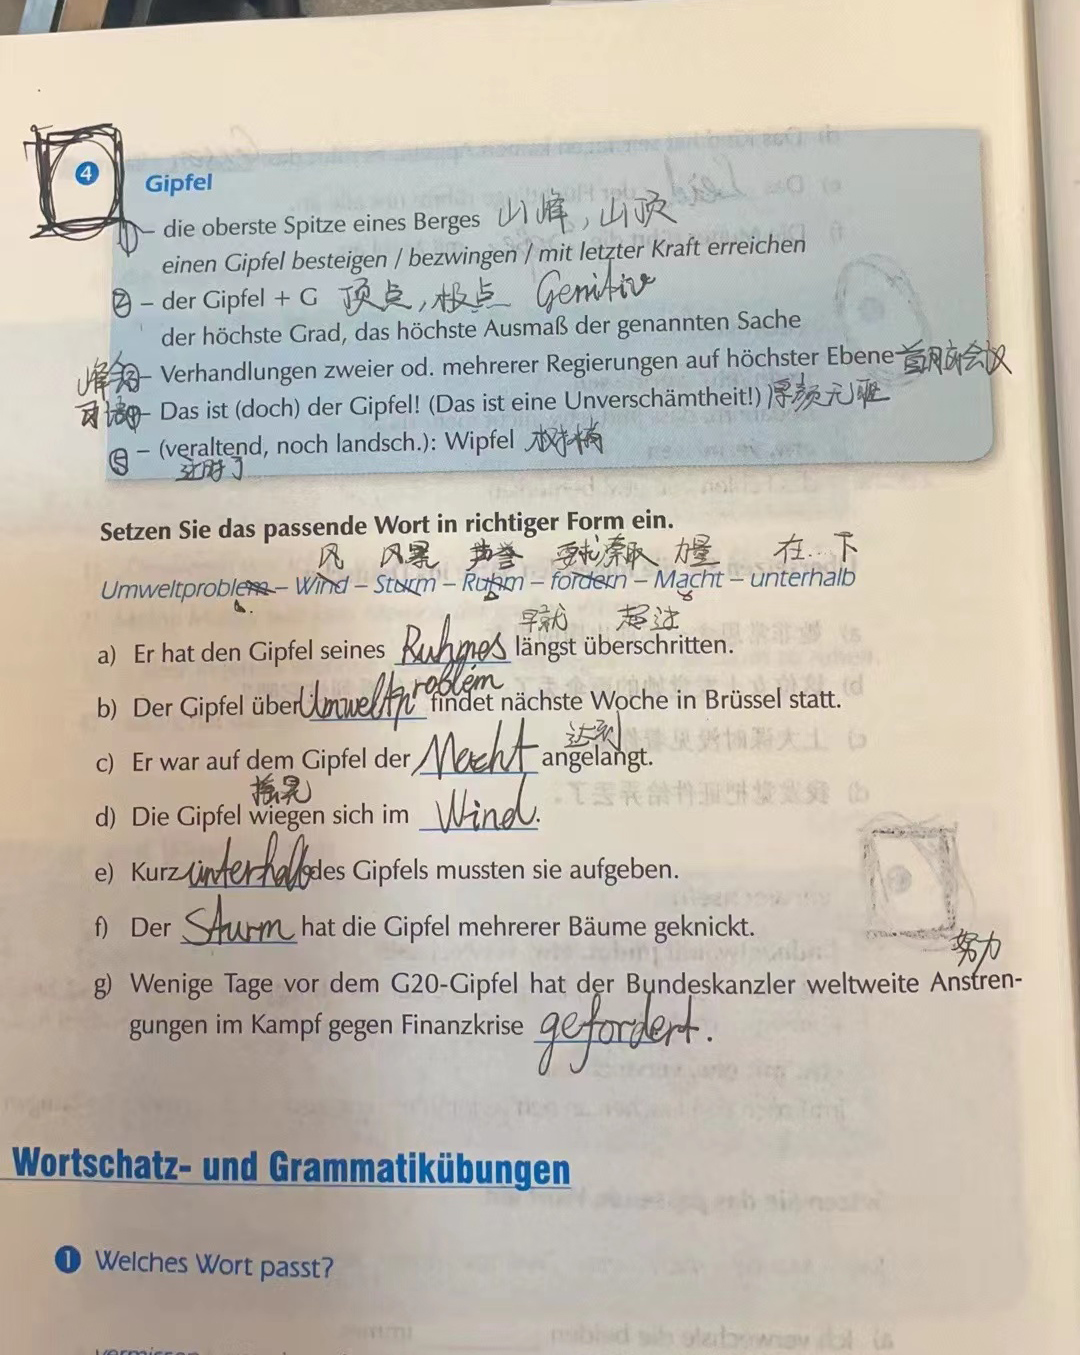 4 Gipfel
① – die oberste Spitze eines Berges 山峰，山顶
einen Gipfel besteigen / bezwingen / mit letzter Kraft erreichen
② – der Gipfel + G 顶点，极点 Genitiv
der höchste Grad, das höchste Ausmaß der genannten Sache
– Verhandlungen zweier od. mehrerer Regierungen auf höchster Ebene 首脑会议
– Das ist (doch) der Gipfel! (Das ist eine Unverschämtheit!) 厚颜无耻
⑤ – (veraltend, noch landsch.): Wipfel 树梢
过时了
Setzen Sie das passende Wort in richtiger Form ein.
风 风暴 声誉 要求 力量 在…下
Umweltproblem – Wind – Sturm – Ruhm – fordern – Macht – unterhalb
早就 超过
a) Er hat den Gipfel seines Ruhmes längst überschritten.
b) Der Gipfel über Umweltproblem findet nächste Woche in Brüssel statt.
达到
c) Er war auf dem Gipfel der Macht angelangt.
摇晃
d) Die Gipfel wiegen sich im Wind.
e) Kurz unterhalb des Gipfels mussten sie aufgeben.
f) Der Sturm hat die Gipfel mehrerer Bäume geknickt.
努力
g) Wenige Tage vor dem G20-Gipfel hat der Bundeskanzler weltweite Anstren-
gungen im Kampf gegen Finanzkrise gefordert.
Wortschatz- und Grammatikübungen
1 Welches Wort passt?